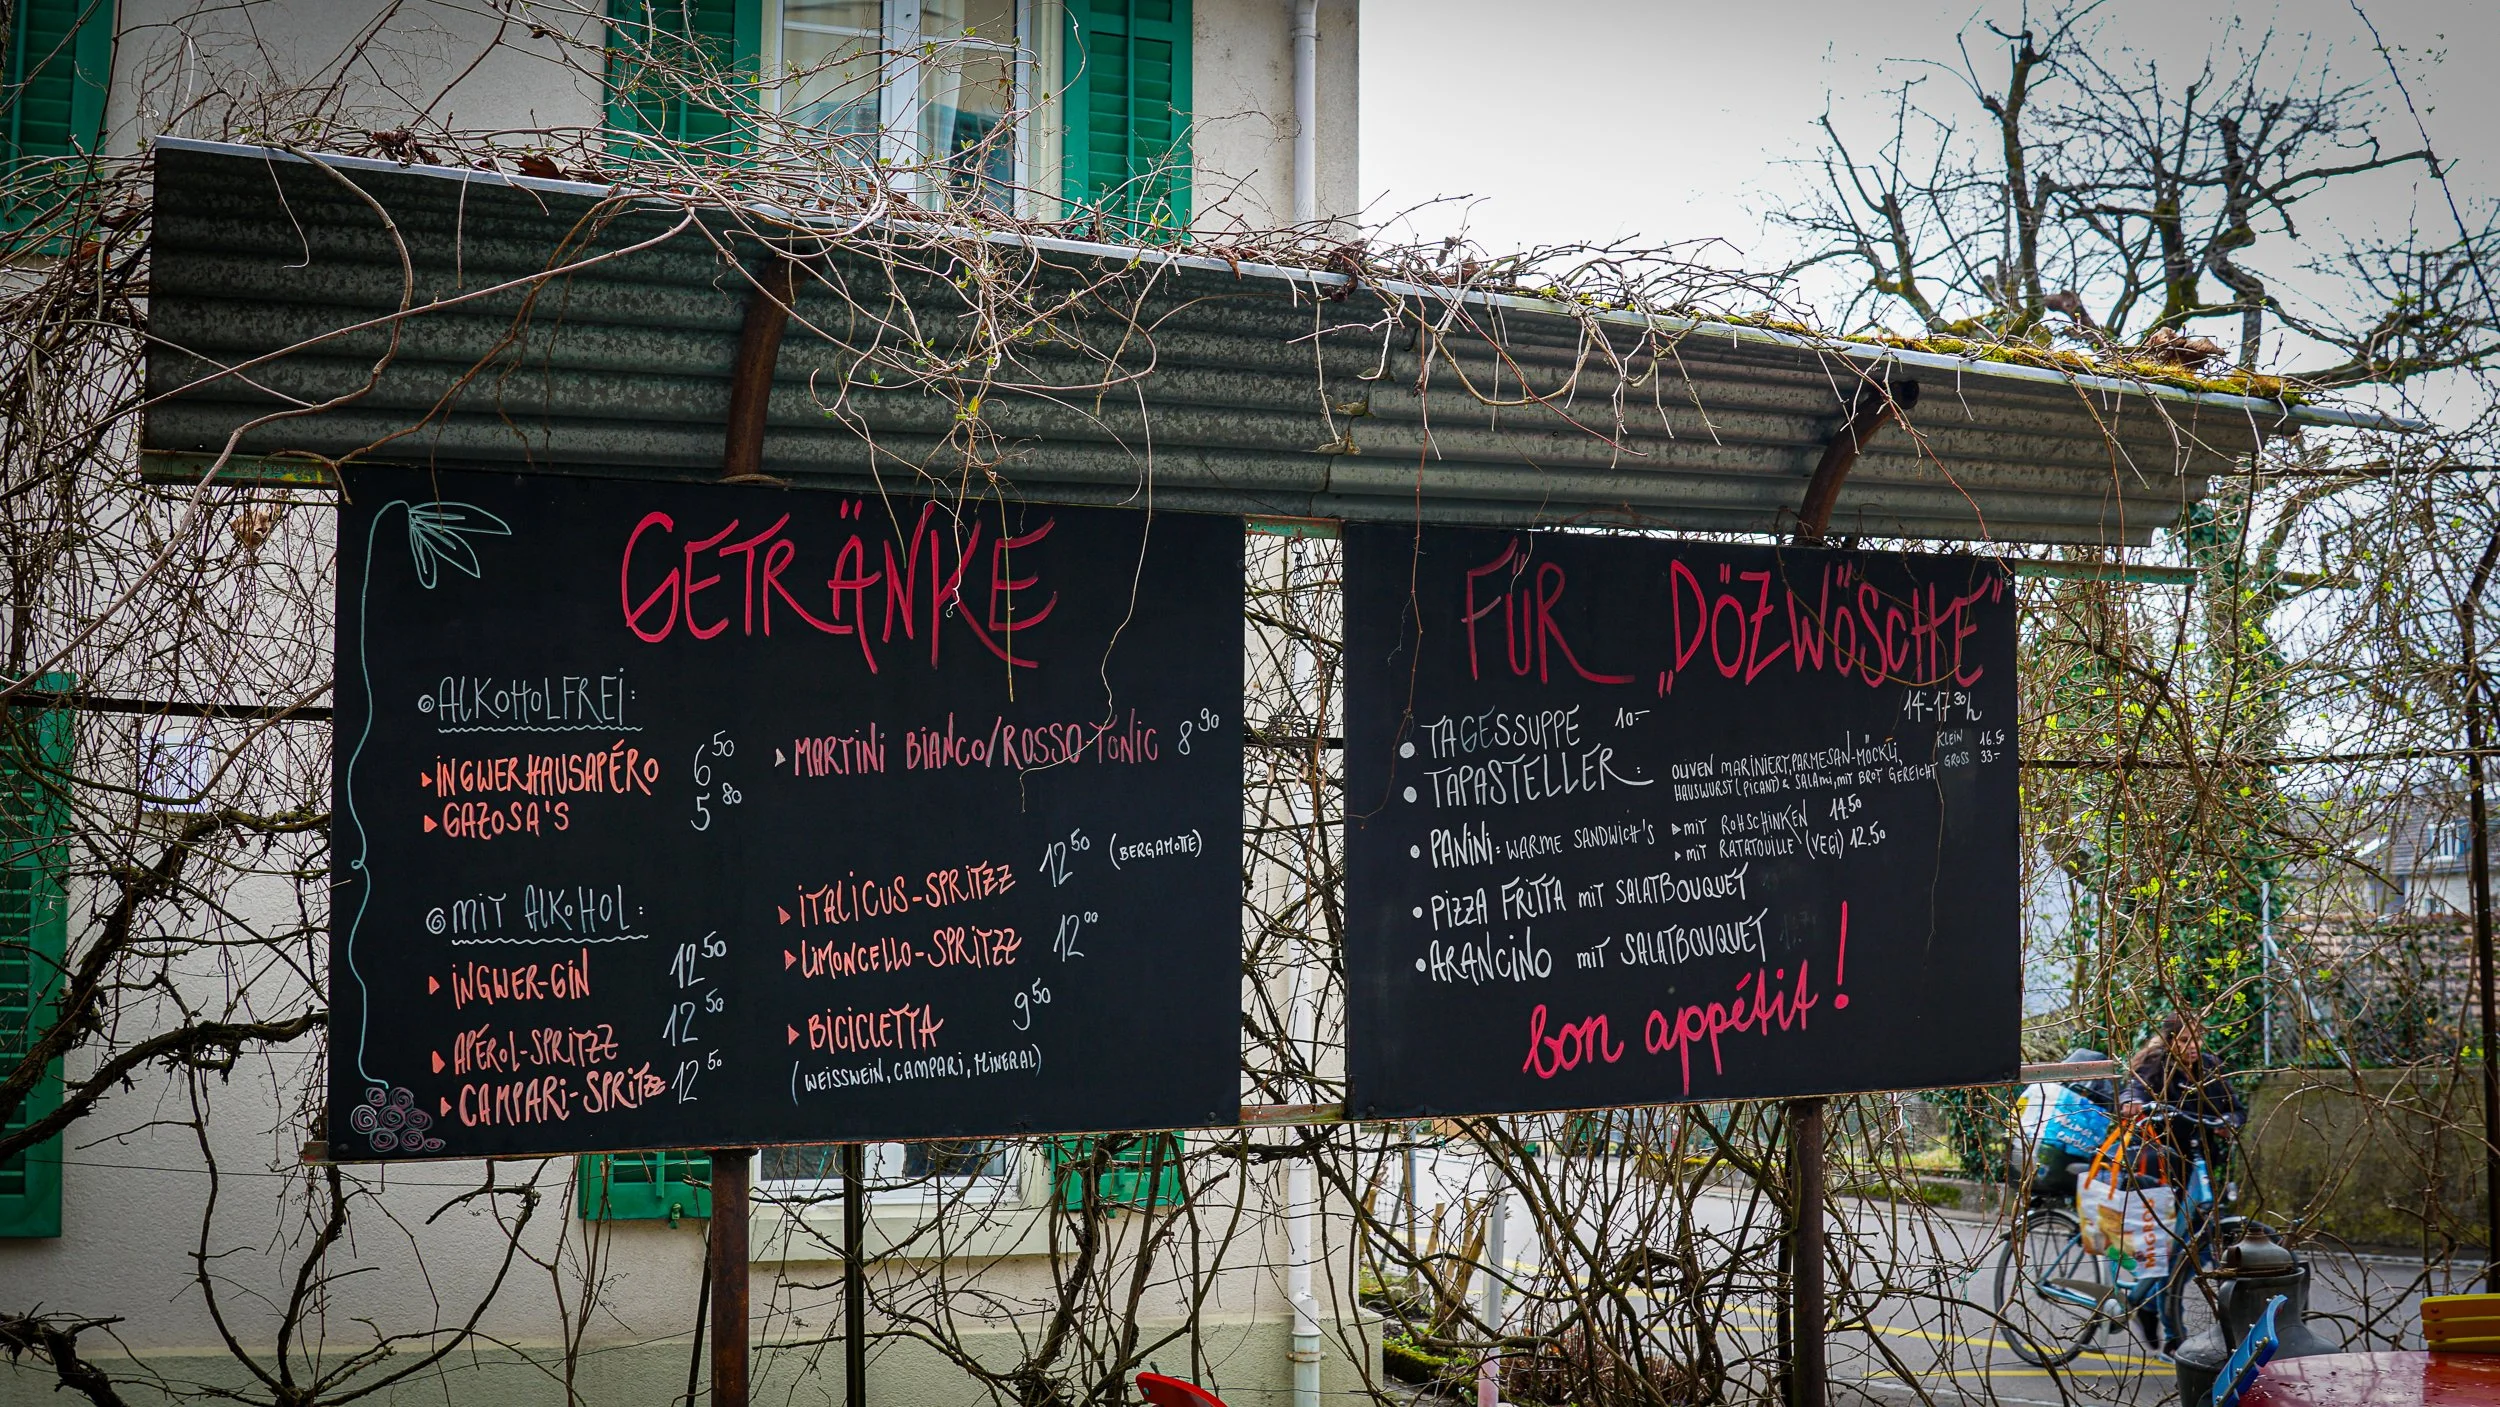 GETRÄNKE
ALKOHOLFREI:
INGWERHAUSAPÉRO 6.50
GAZOSA'S 5.80
MARTINI BIANCO/ROSSO TONIC 8.90
MIT ALKOHOL:
INGWER-GIN 12.50
APÉROL-SPRITZZ 12.50
CAMPARI-SPRITZZ 12.50
ITALICUS-SPRITZZ 12.50 (BERGAMOTTE)
LIMONCELLO-SPRITZZ 12.00
BICICLETTA 9.50
(WEISSWEIN, CAMPARI, MINERAL)
FÜR „DÖZWÖSCHE"
14-17.30h
TAGESSUPPE 10.-
TAPASTELLER: OLIVEN MARINIERT, PARMESAN-MÖCKLI, KLEIN 16.50
HAUSWURST (PICANT) & SALAMI, MIT BROT GEREICHT GROSS 33.-
PANINI: WARME SANDWICH'S MIT ROHSCHINKEN 14.50
MIT RATATOUILLE (VEGI) 12.50
PIZZA FRITTA MIT SALATBOUQUET
ARANCINO MIT SALATBOUQUET
bon appétit!
MIGROS